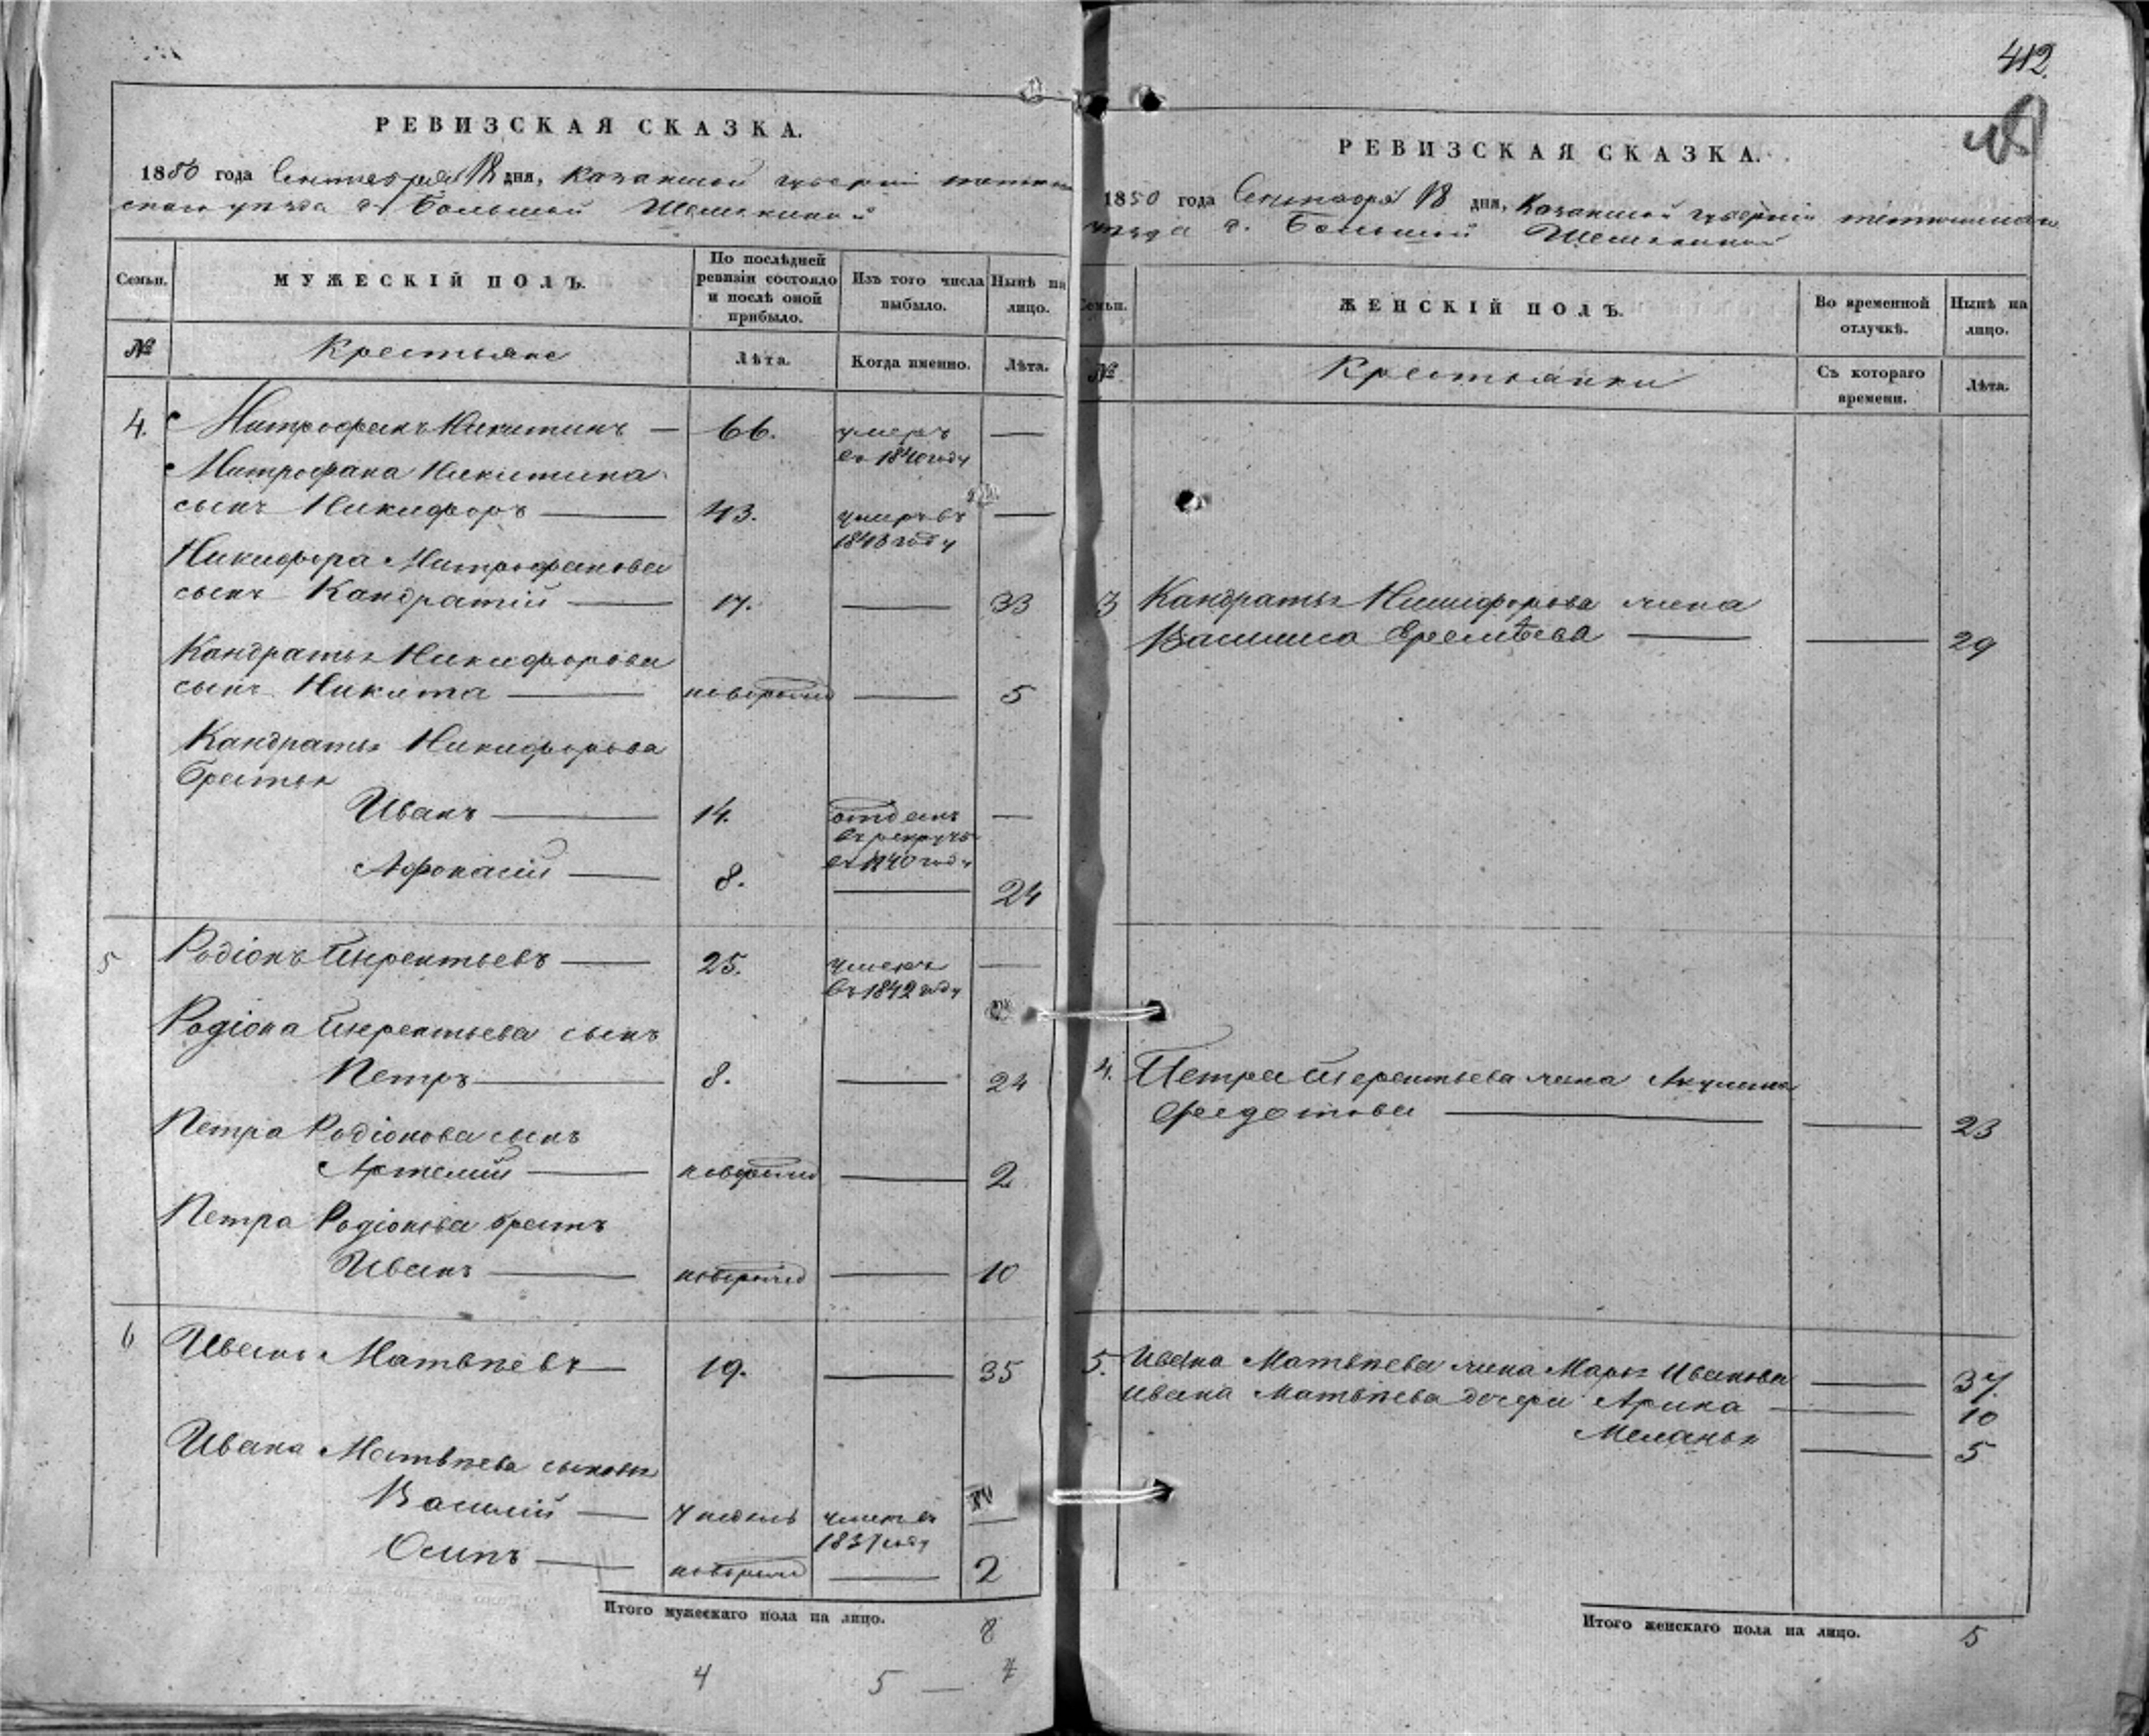 РЕВИЗСКАЯ СКАЗКА.
1850 года Сентября 18 дня, Казанской губернии тетюш
скаго уезда д. Большой Шемякиной
Семьи. МУЖЕСКІЙ ПОЛЪ. По послѣдней ревизіи состояло и послѣ оной прибыло. Изъ того числа выбыло. Нынѣ на лицо.
№ Крестьяне Лѣта. Когда именно. Лѣта.
4. Митрофанъ Никитинъ — 66. умеръ въ 1840 году —
Митрофана Никитина
сынъ Никифоръ — 43. умеръ въ 1843 году —
Никифора Митрофанова
сынъ Кандратій — 17. — 33
Кандратья Никифорова
сынъ Никита — новорожд — 5
Кандратья Никифорова
братья
Иванъ — 14. отданъ въ рекруты въ 1840 году —
Афонасій — 8. — 24
5 Родіонъ Терентьевъ — 25. умеръ въ 1842 году —
Родіона Терентьева сынъ
Петръ — 8. — 24
Петра Родіонова сынъ
Артемій — новорожд — 2
Петра Родіонова братъ
Иванъ — новорожд — 10
6 Иванъ Матвѣевъ — 19. — 35
Ивана Матвѣева сыновья
Василій — 7 недель умеръ въ 1837 году —
Осипъ — новорожд — 2
Итого мужескаго пола на лицо. 8
4 5 — 7
412.
РЕВИЗСКАЯ СКАЗКА.
1850 года Сентября 18 дня, Казанской губерніи тетюшскаго
уезда д. Большой Шемякиной
Семьи. ЖЕНСКІЙ ПОЛЪ. Во временной отлучкѣ. Нынѣ на лицо.
№ Крестьянки Съ котораго времени. Лѣта.
3 Кандратья Никифорова жена
Василиса Еремѣева — — 29
4. Петра Терентьева жена Акулина
Федотова — — 23
5. Ивана Матвѣева жена Марья Иванова — 37
Ивана Матвѣева дочери Арина — — 10
Меланья — 5
Итого женскаго пола на лицо. 5